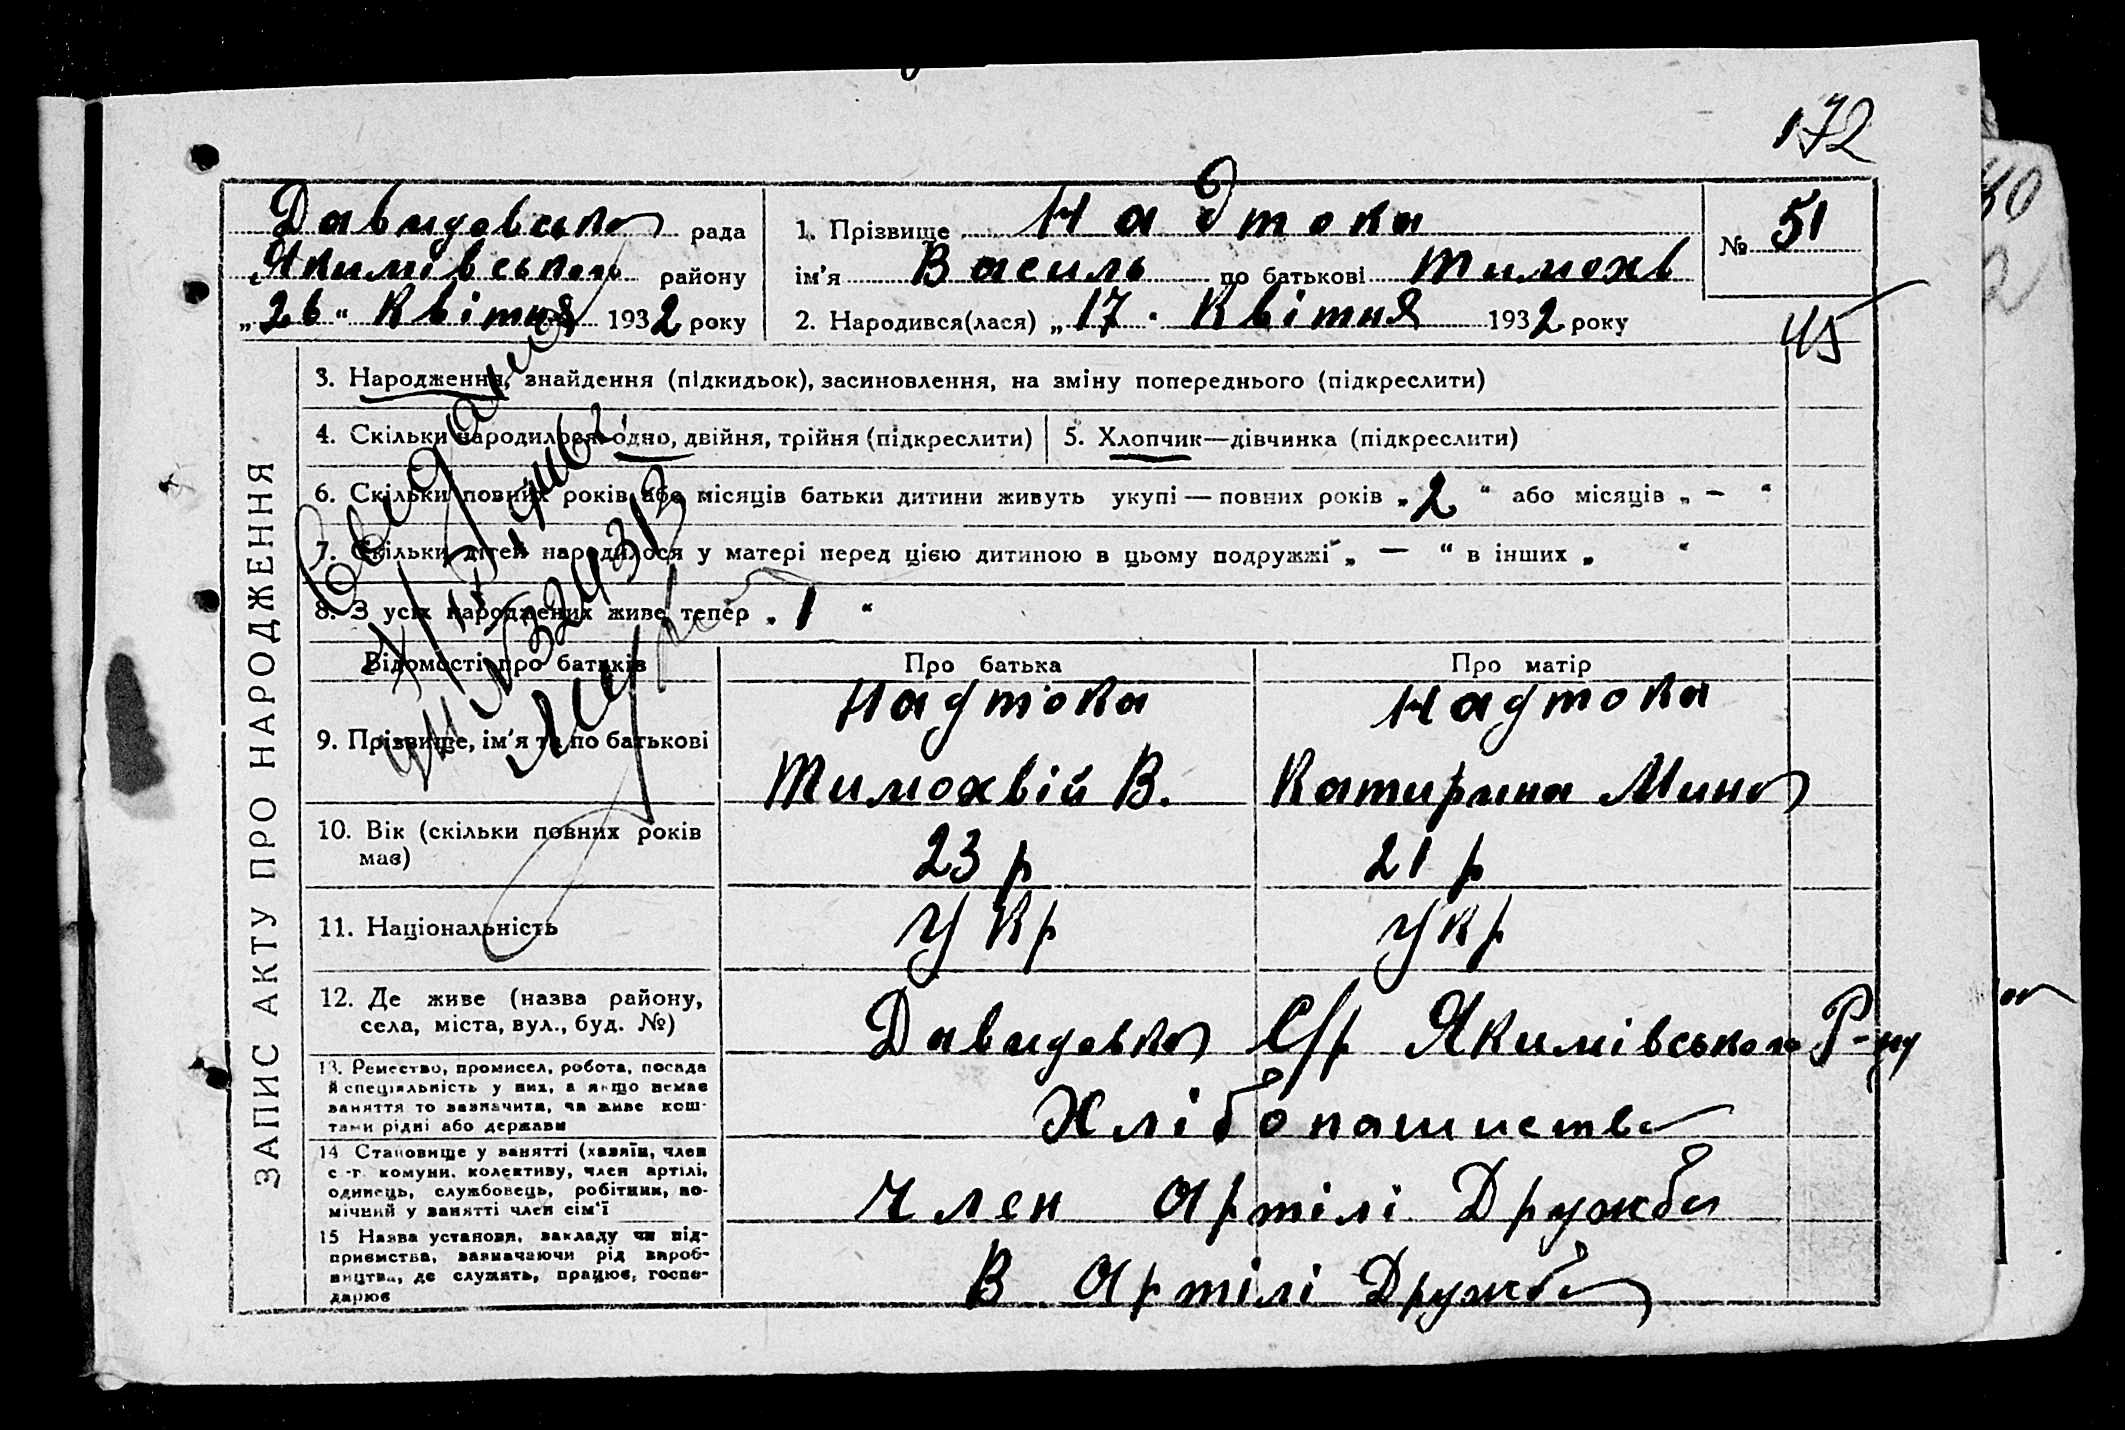 172
Давидовська рада
Якимівського району
„26“ Квітня 1932 року
1. Прізвище Надтока
ім'я Василь по батькові Тимохв
2. Народився(лася) „17. Квітня 1932 року
№ 51
45
ЗАПИС АКТУ ПРО НАРОДЖЕННЯ
3. Народження, знайдення (підкидьок), засиновлення, на зміну попереднього (підкреслити)
4. Скільки народилося: одно, двійня, трійня (підкреслити)
5. Хлопчик—дівчинка (підкреслити)
6. Скільки повних років або місяців батьки дитини живуть укупі — повних років „2“ або місяців „—“
7. Скільки дітей народилося у матері перед цією дитиною в цьому подружжі „—“ в інших „ “
8. З усіх народжених живе тепер „1“
Відомості про батьків
Про батька
Про матір
9. Прізвище, ім'я та по батькові
Надтока
Тимохвій В.
Надтока
Катирина Мина
10. Вік (скільки повних років
має)
23 р
21 р
11. Національність
Укр
Укр
12. Де живе (назва району,
села, міста, вул., буд. №)
Давидовка С/р Якимівського Р-ну
13. Ремество, промисел, робота, посада
й спеціяльність у них, а якщо немає
заняття то зазначити, чи живе кош-
тами рідні або держави
Хлібопашиство
14 Становище у занятті (хазяїн, член
с.-г. комуни, колективу, член артілі,
одинець, службовець, робітник, по-
мічний у занятті член сім'ї
Член Артілі Дружба
15 Назва установи, закладу чи під-
приємства, зазначаючи рід вироб-
ництва, де служить, працює, госпо-
дарює
В Артілі Дружба